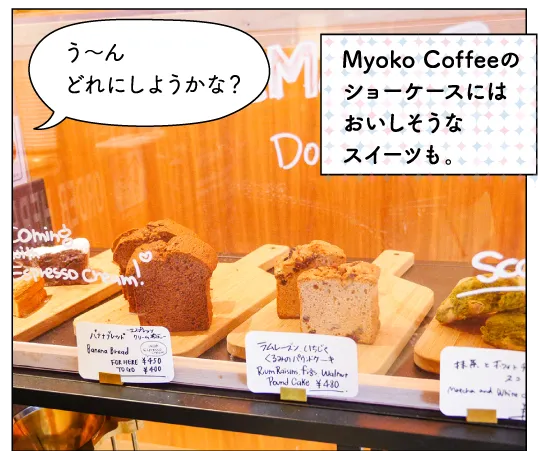 う〜ん
どれにしようかな？
Myoko Coffeeの
ショーケースには
おいしそうな
スイーツも。
Do
coming
with
Espresso cream!
Sc
バナナブレッド
Banana Bread
FOR HERE ¥450
TO GO ¥400
ラムレーズン、いちじく
くるみのパウンドケーキ
Rum Raisin, figs, Walnut
Pound Cake ¥480
抹茶と
Matcha and White